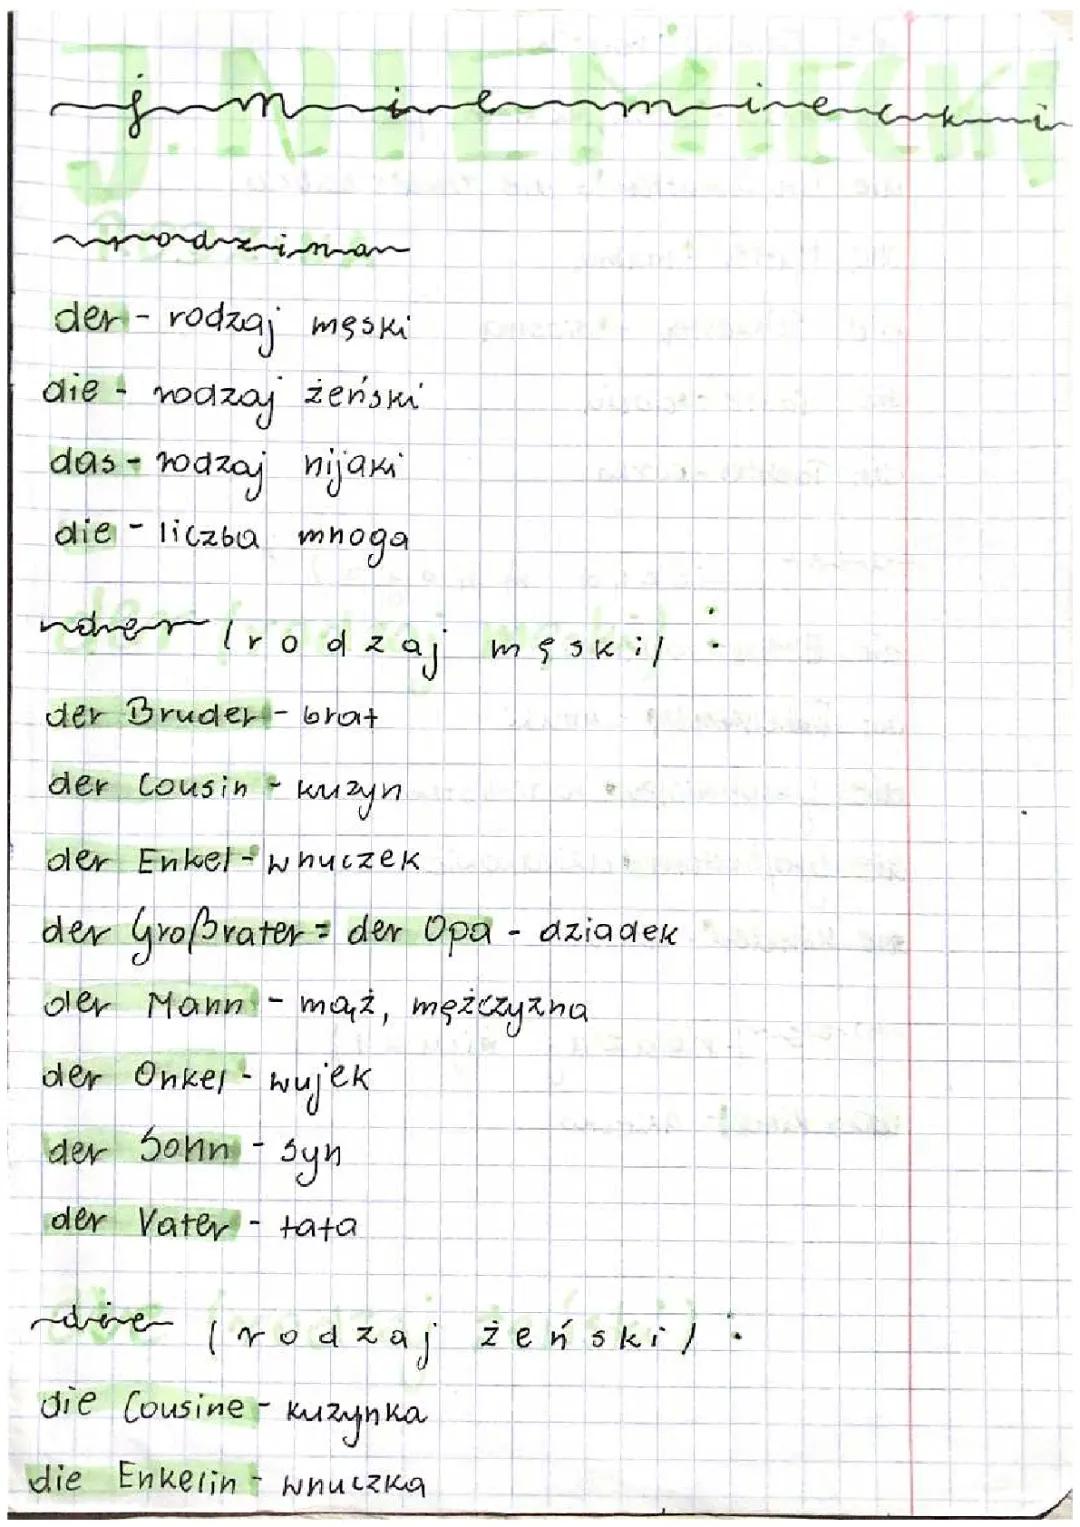 j. niemiecki
J. NIEMIECKI
rodzina
der - rodzaj męski
die - rodzaj żeński
das - rodzaj nijaki
die - liczba mnoga
der (rodzaj męski) :
der Bruder - brat
der Cousin - kuzyn
der Enkel - wnuczek
der Großvater = der Opa - dziadek
der Mann - mąż, mężczyzna
der Onkel - wujek
der Sohn - syn
der Vater - tata
die (rodzaj żeński) :
die Cousine - kuzynka
die Enkelin - wnuczka